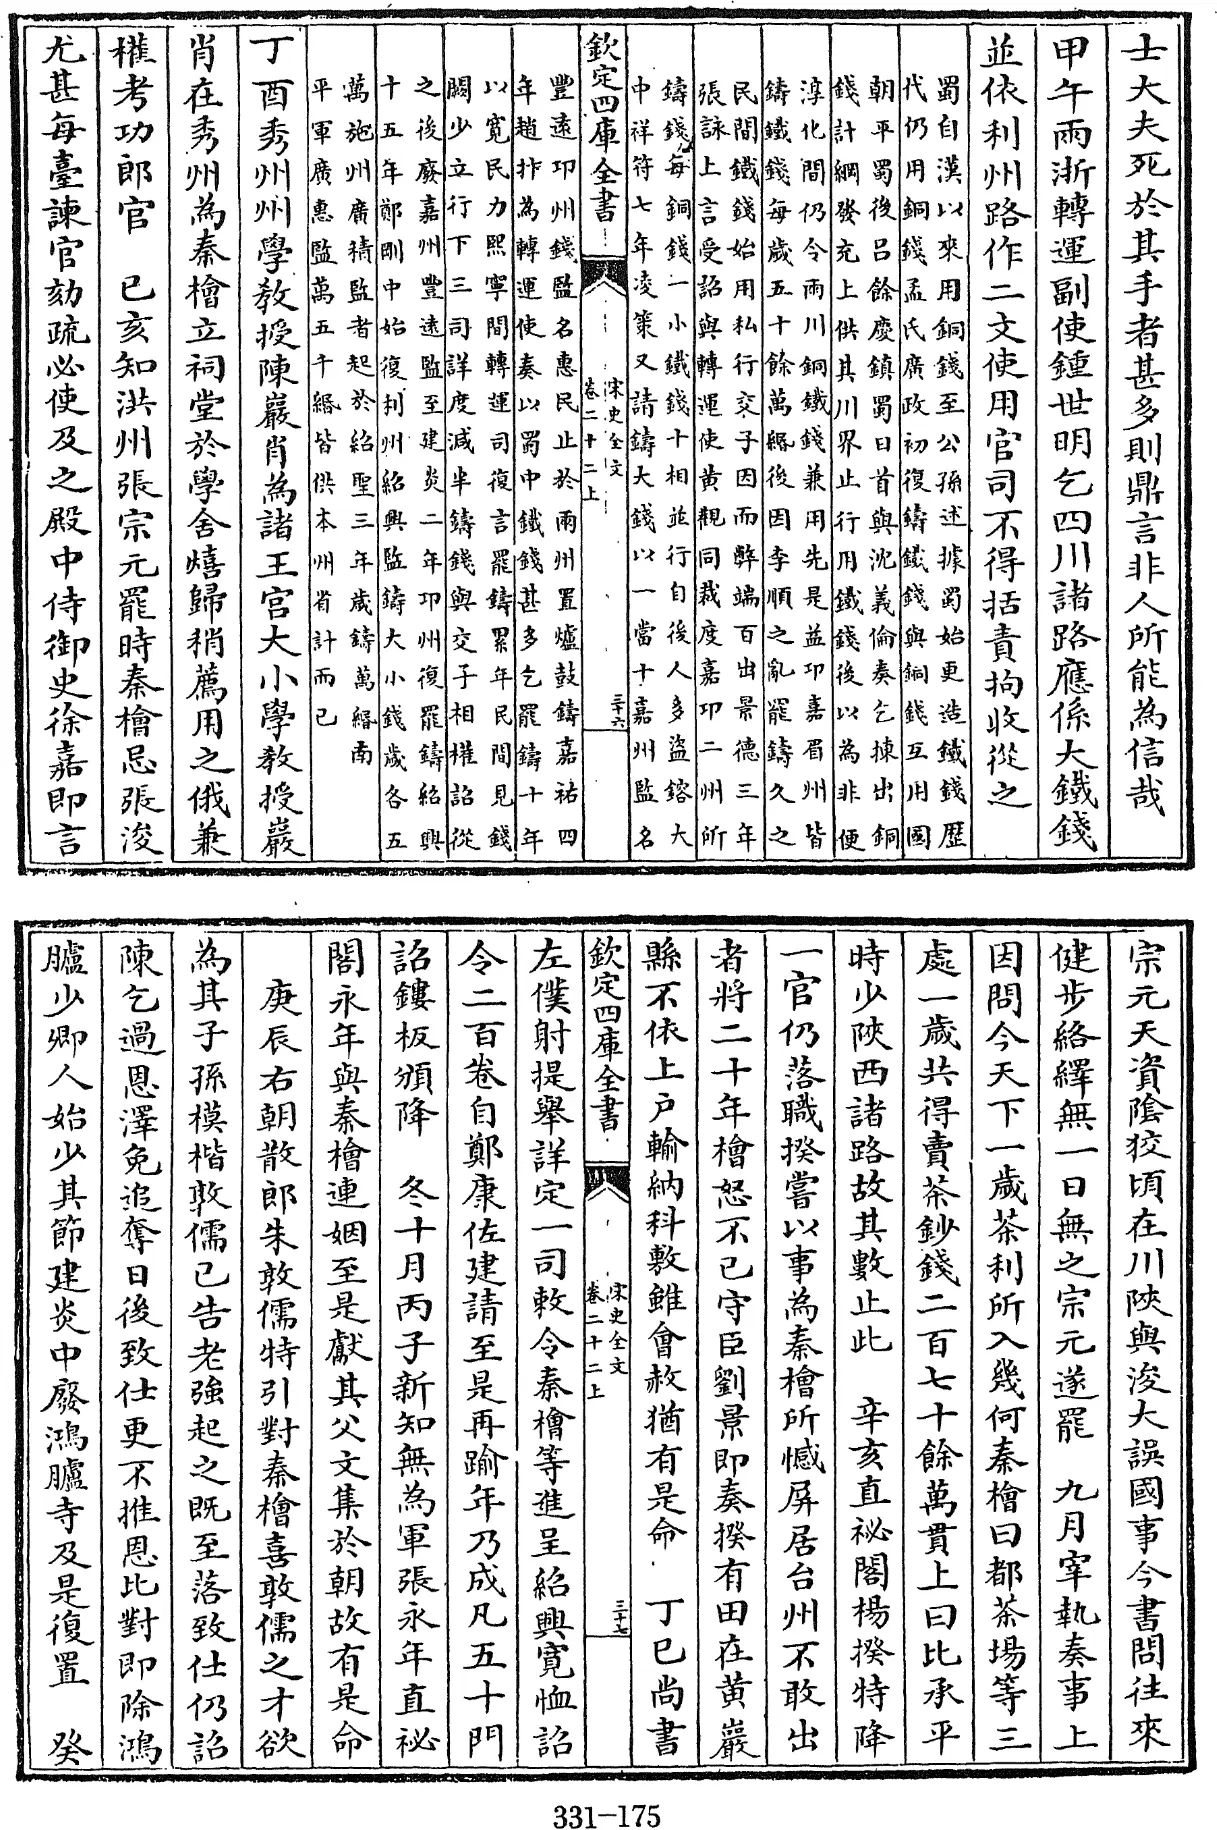 士大夫死於其手者甚多則鼎言非人所能為信哉
甲午兩浙轉運副使鍾世明乞四川諸路應係大鐵錢
並依利州路作二文使用官司不得括責拘收從之
蜀自漢以來用銅錢至公孫述據蜀始更造鐵錢歷
代仍用銅錢孟氏廣政初復鑄鐵錢與銅錢互用國
朝平蜀後呂餘慶鎮蜀日首與沈義倫奏乞揀出銅
錢計綱發充上供其川界止行用鐵錢後以為非便
淳化間仍令兩川銅鐵錢兼用先是益卭嘉眉州皆
鑄鐵錢每歲五十餘萬緡後因李順之亂罷鑄久之
民間鐵錢始用私行交子因而弊端百出景德三年
張詠上言受詔與轉運使黄觀同裁度嘉卭二州所
鑄錢每銅錢一小鐵錢十相並行自後人多盜鎔大
中祥符七年凌策又請鑄大錢以一當十嘉州監名
欽定四庫全書
宋史全文
卷二十二上
三十六
豐遠卭州錢監名惠民止於兩州置爐鼓鑄嘉祐四
年趙抃為轉運使奏以蜀中鐵錢甚多乞罷鑄十年
以寛民力熙寧間轉運司復言罷鑄累年民間見錢
闕少立行下三司詳度減半鑄錢與交子相權詔從
之後廢嘉州豐遠監至建炎二年卭州復罷鑄紹興
十五年鄭剛中始復利州紹興監鑄大小錢歲各五
萬施州廣積監者起於紹聖三年歲鑄萬緡南
平軍廣惠監萬五千緡皆供本州省計而已
丁酉秀州州學教授陳巖肖為諸王宮大小學教授巖
肖在秀州為秦檜立祠堂於學舍熺歸稍薦用之俄兼
權考功郎官　己亥知洪州張宗元罷時秦檜忌張浚
尤甚每臺諫官劾疏必使及之殿中侍御史徐嘉即言
宗元天資陰狡頃在川陝與浚大誤國事今書問往來
健步絡繹無一日無之宗元遂罷　九月宰執奏事上
因問今天下一歲茶利所入幾何秦檜曰都茶場等三
處一歲共得賣茶鈔錢二百七十餘萬貫上曰比承平
時少陝西諸路故其數止此　辛亥直祕閣楊揆特降
一官仍落職揆嘗以事為秦檜所憾屏居台州不敢出
者將二十年檜怒不已守臣劉景即奏揆有田在黄巖
縣不依上戶輸納科敷雖會赦猶有是命　丁巳尚書
欽定四庫全書
宋史全文
卷二十二上
三十七
左僕射提舉詳定一司敕令秦檜等進呈紹興寛恤詔
令二百卷自鄭康佐建請至是再踰年乃成凡五十門
詔鏤板頒降　冬十月丙子新知無為軍張永年直祕
閣永年與秦檜連姻至是獻其父文集於朝故有是命
庚辰右朝散郎朱敦儒特引對秦檜喜敦儒之才欲
為其子孫模楷敦儒已告老強起之既至落致仕仍詔
陳乞過恩澤免追奪日後致仕更不推恩比對即除鴻
臚少卿人始少其節建炎中廢鴻臚寺及是復置　癸
331-175